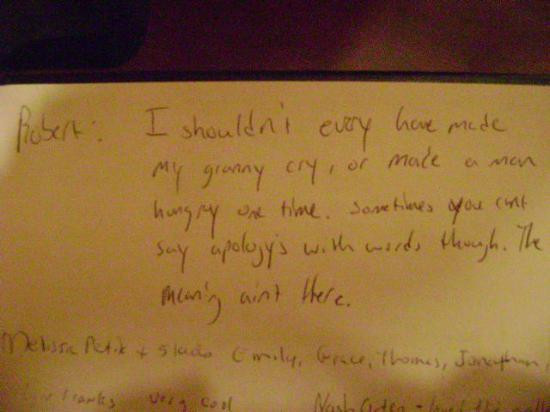 Robert: I shouldn't every have made
my granny cry, or made a man
hungry one time. Sometimes you cant
say apology's with words though. The
meanig aint there.
Melissa + Emily, Grace, Thomas, Jonathan,
Franks very cool Nash